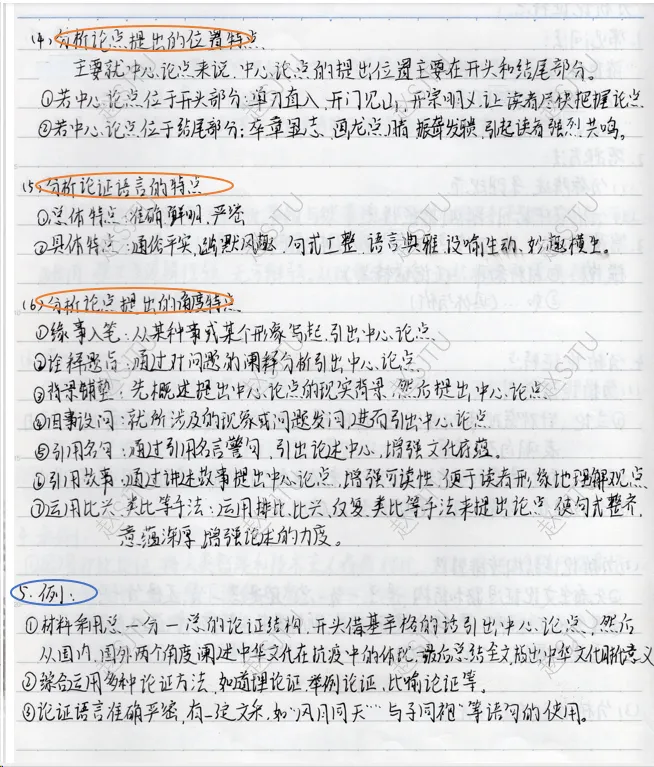 (4)、分析论点提出的位置特点
主要就中心论点来说,中心论点的提出位置主要在开头和结尾部分。
①若中心论点位于开头部分:单刀直入、开门见山、开宗明义,让读者尽快把握论点
②若中心论点位于结尾部分:卒章显志、画龙点睛、振聋发聩,引起读者强烈共鸣。
(5)、分析论证语言的特点
①总体特点:准确、鲜明、严密
②具体特点:通俗平实,幽默风趣,句式工整,语言典雅,设喻生动、妙趣横生。
(6)、分析论点提出的角度特点
①缘事入笔:从某种事或某个形象写起,引出中心论点
②诠释题旨:通过对问题的阐释分析引出中心论点
③背景铺垫:先概述提出中心论点的现实背景,然后提出中心论点
④因事设问:就所涉及的现象或问题发问,进而引出中心论点
⑤引用名句:通过引用名言警句,引出论述中心,增强文化底蕴。
⑥引用故事:通过讲述故事提出中心论点,增强可读性,便于读者形象地理解观点
⑦运用比兴、类比等手法:运用排比、比兴、反复、类比等手法来提出论点,使句式整齐,
意蕴深厚,增强论述的力度。
5、例:
①材料采用总一分一总的论证结构,开头借基辛格的话引出中心论点,然后
从国内、国外两个角度阐述中华文化在抗疫中的体现,最后总结全文指出中华文化时代意义
②综合运用多种论证方法,如道理论证,举例论证,比喻论证等。
③论证语言准确严密,有一定文采,如“风月同天”“与子同袍”等语句的使用。
赵SJTU